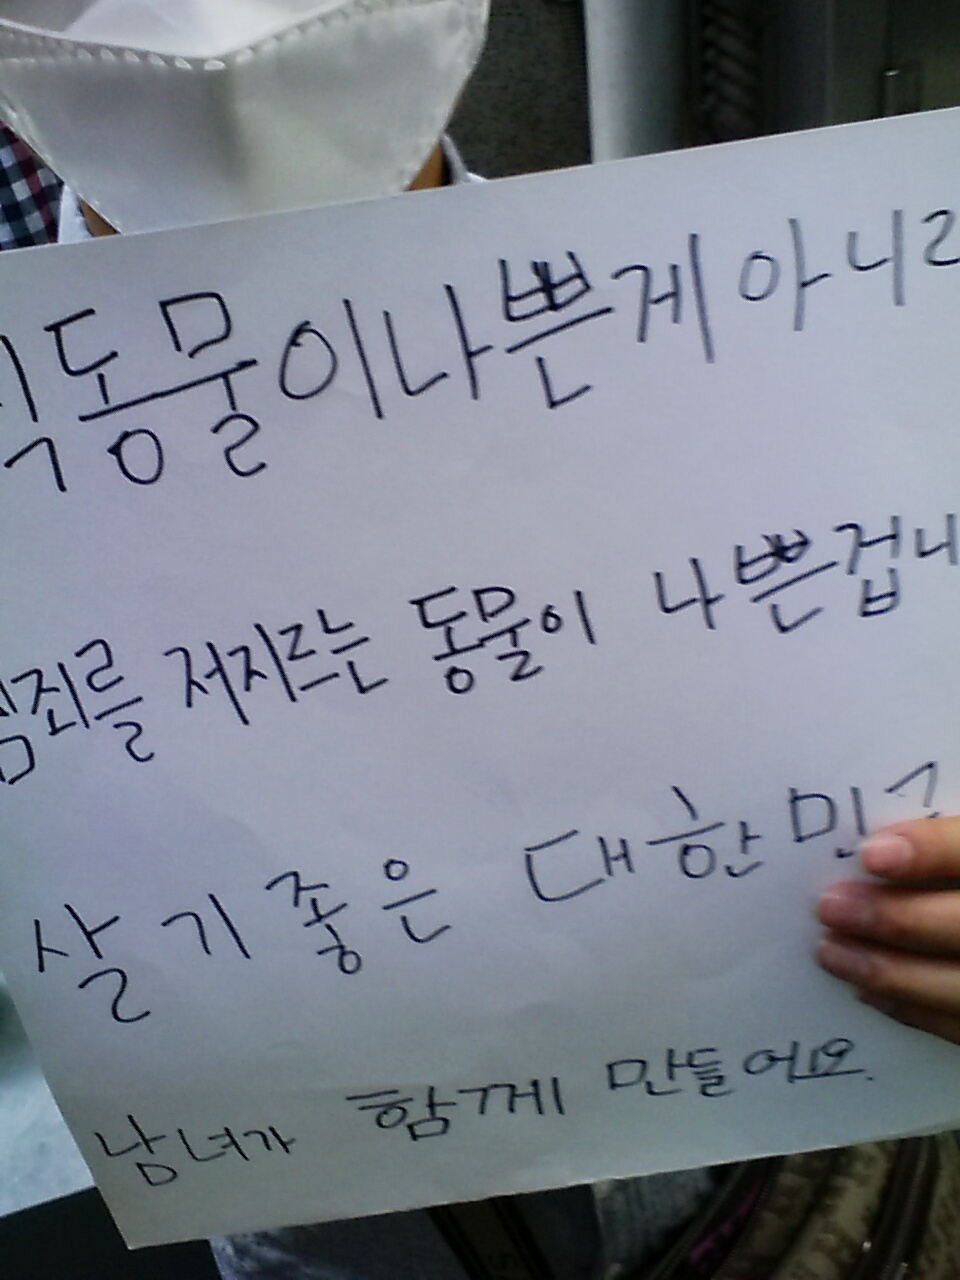 동물이나쁜게 아니라
범죄를 저지르는 동물이 나쁜겁니
살기좋은 대한민국
남녀가 함께 만들어요.